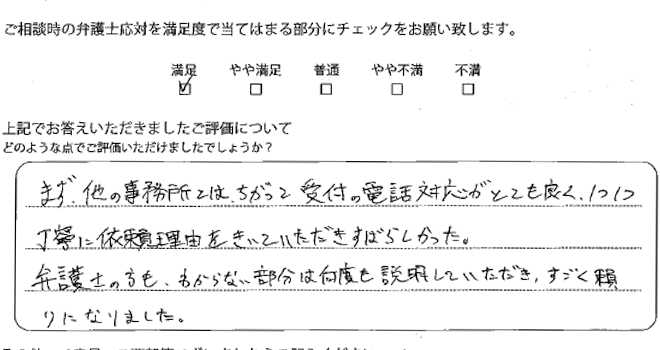 ご相談時の弁護士応対を満足度で当てはまる部分にチェックをお願い致します。
満足 やや満足 普通 やや不満 不満
上記でお答えいただきましたご評価について
どのような点でご評価いただけましたでしょうか？
まず、他の事務所とは、ちがって受付の電話対応がとても良く、1つ1つ
丁寧に依頼理由をきいていただきすばらしかった。
弁護士の方も、わからない部分は何度も説明していただき、すごく頼
りになりました。